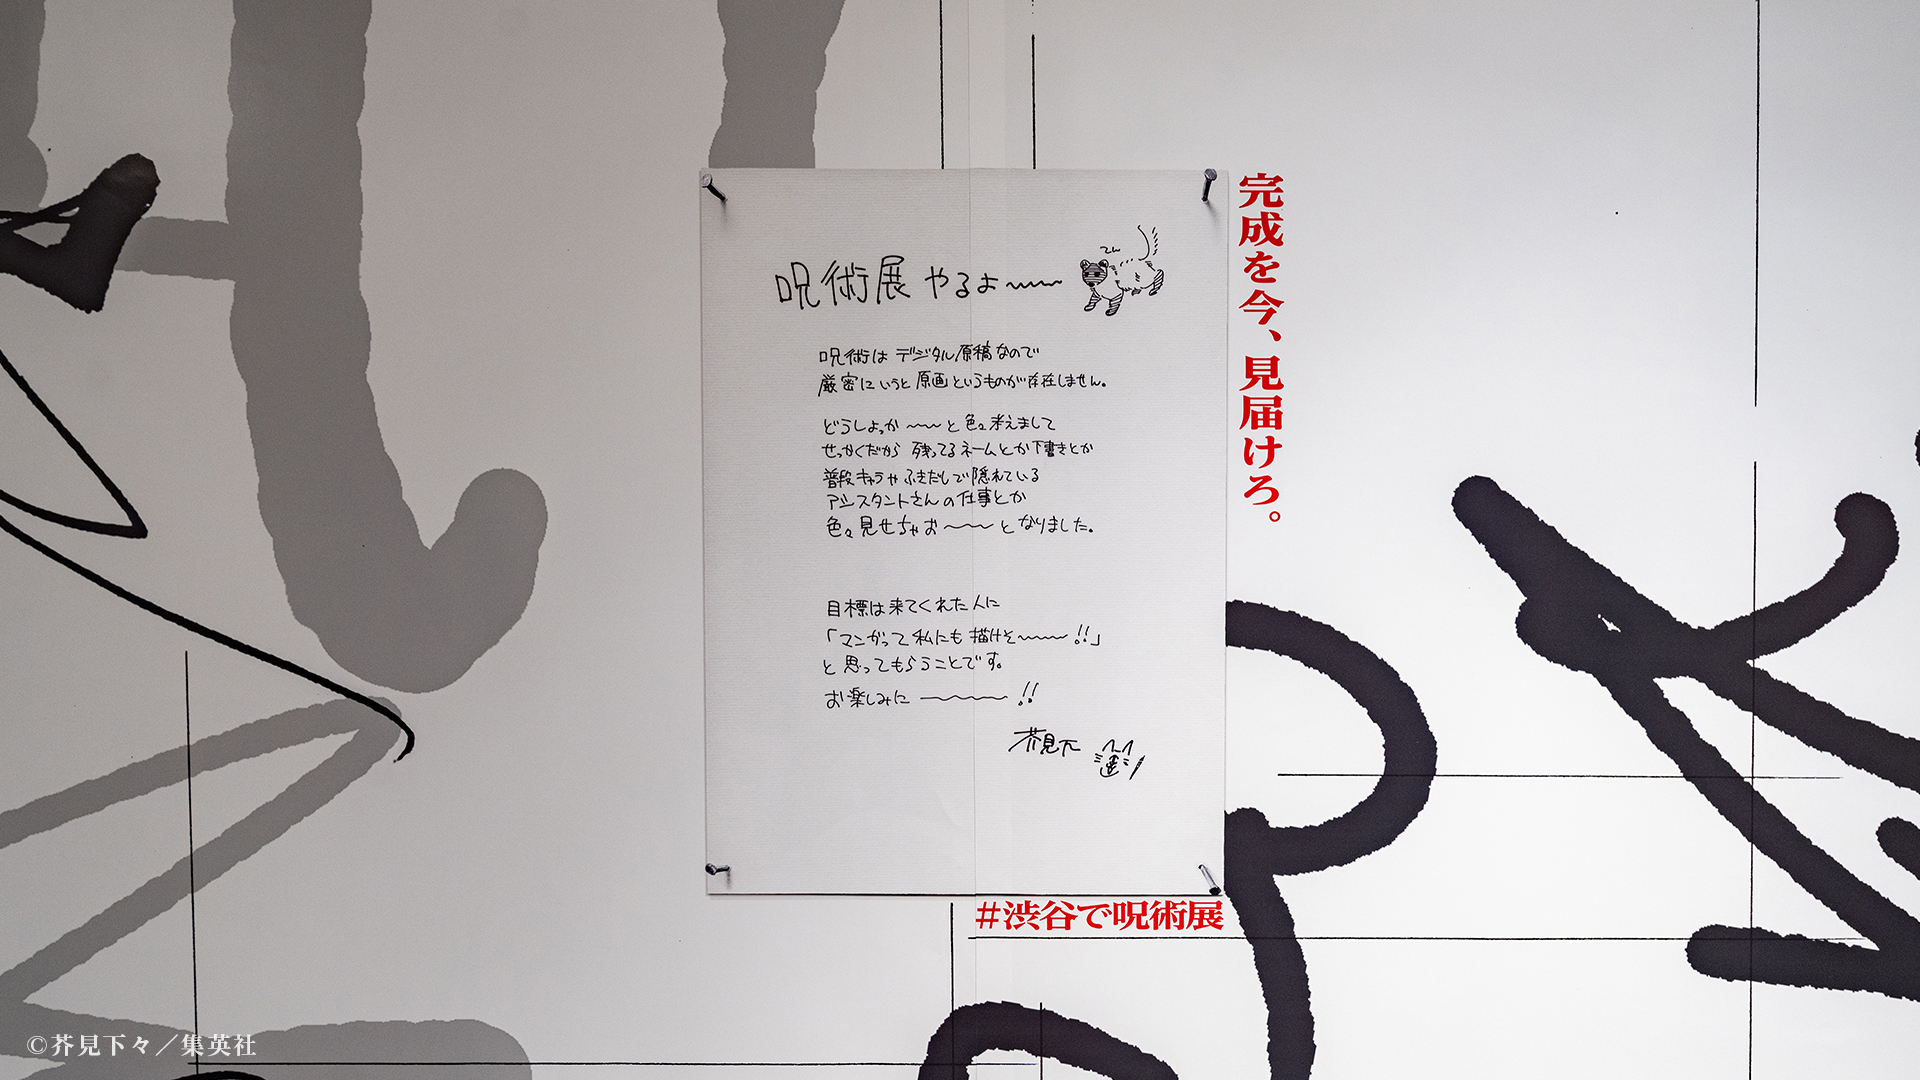 呪術展やるよ〜〜〜
てん
呪術はデジタル原稿なので
厳密にいうと原画というものが存在しません。
どうしよっか〜〜〜と色々考えまして
せっかくだから残ってるネームとか下書きとか
普段キャラやふきだしで隠れている
アシスタントさんの仕事とか
色々見せちゃお〜〜〜となりました。
目標は来てくれた人に
「マンガって私にも描けそ〜〜〜!!」
と思ってもらうことです。
お楽しみに〜〜〜〜!!
芥見下々
完成を今、見届けろ。
#渋谷で呪術展
©芥見下々／集英社